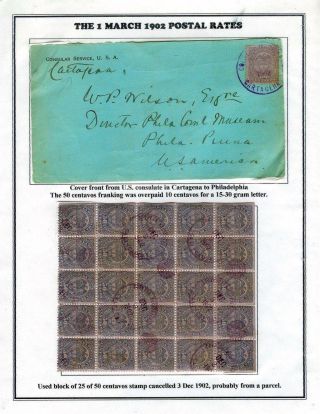 THE 1 MARCH 1902 POSTAL RATES
CONSULAR SERVICE, U. S. A.
Cartagena
CARTAGENA
W. P. Wilson, Esqre
Director Phila Coml Museum
Phila. Penna
U.S. America
Cover front from U.S. consulate in Cartagena to Philadelphia
The 50 centavos franking was overpaid 10 centavos for a 15-30 gram letter.
Used block of 25 of 50 centavos stamp cancelled 3 Dec 1902, probably from a parcel.